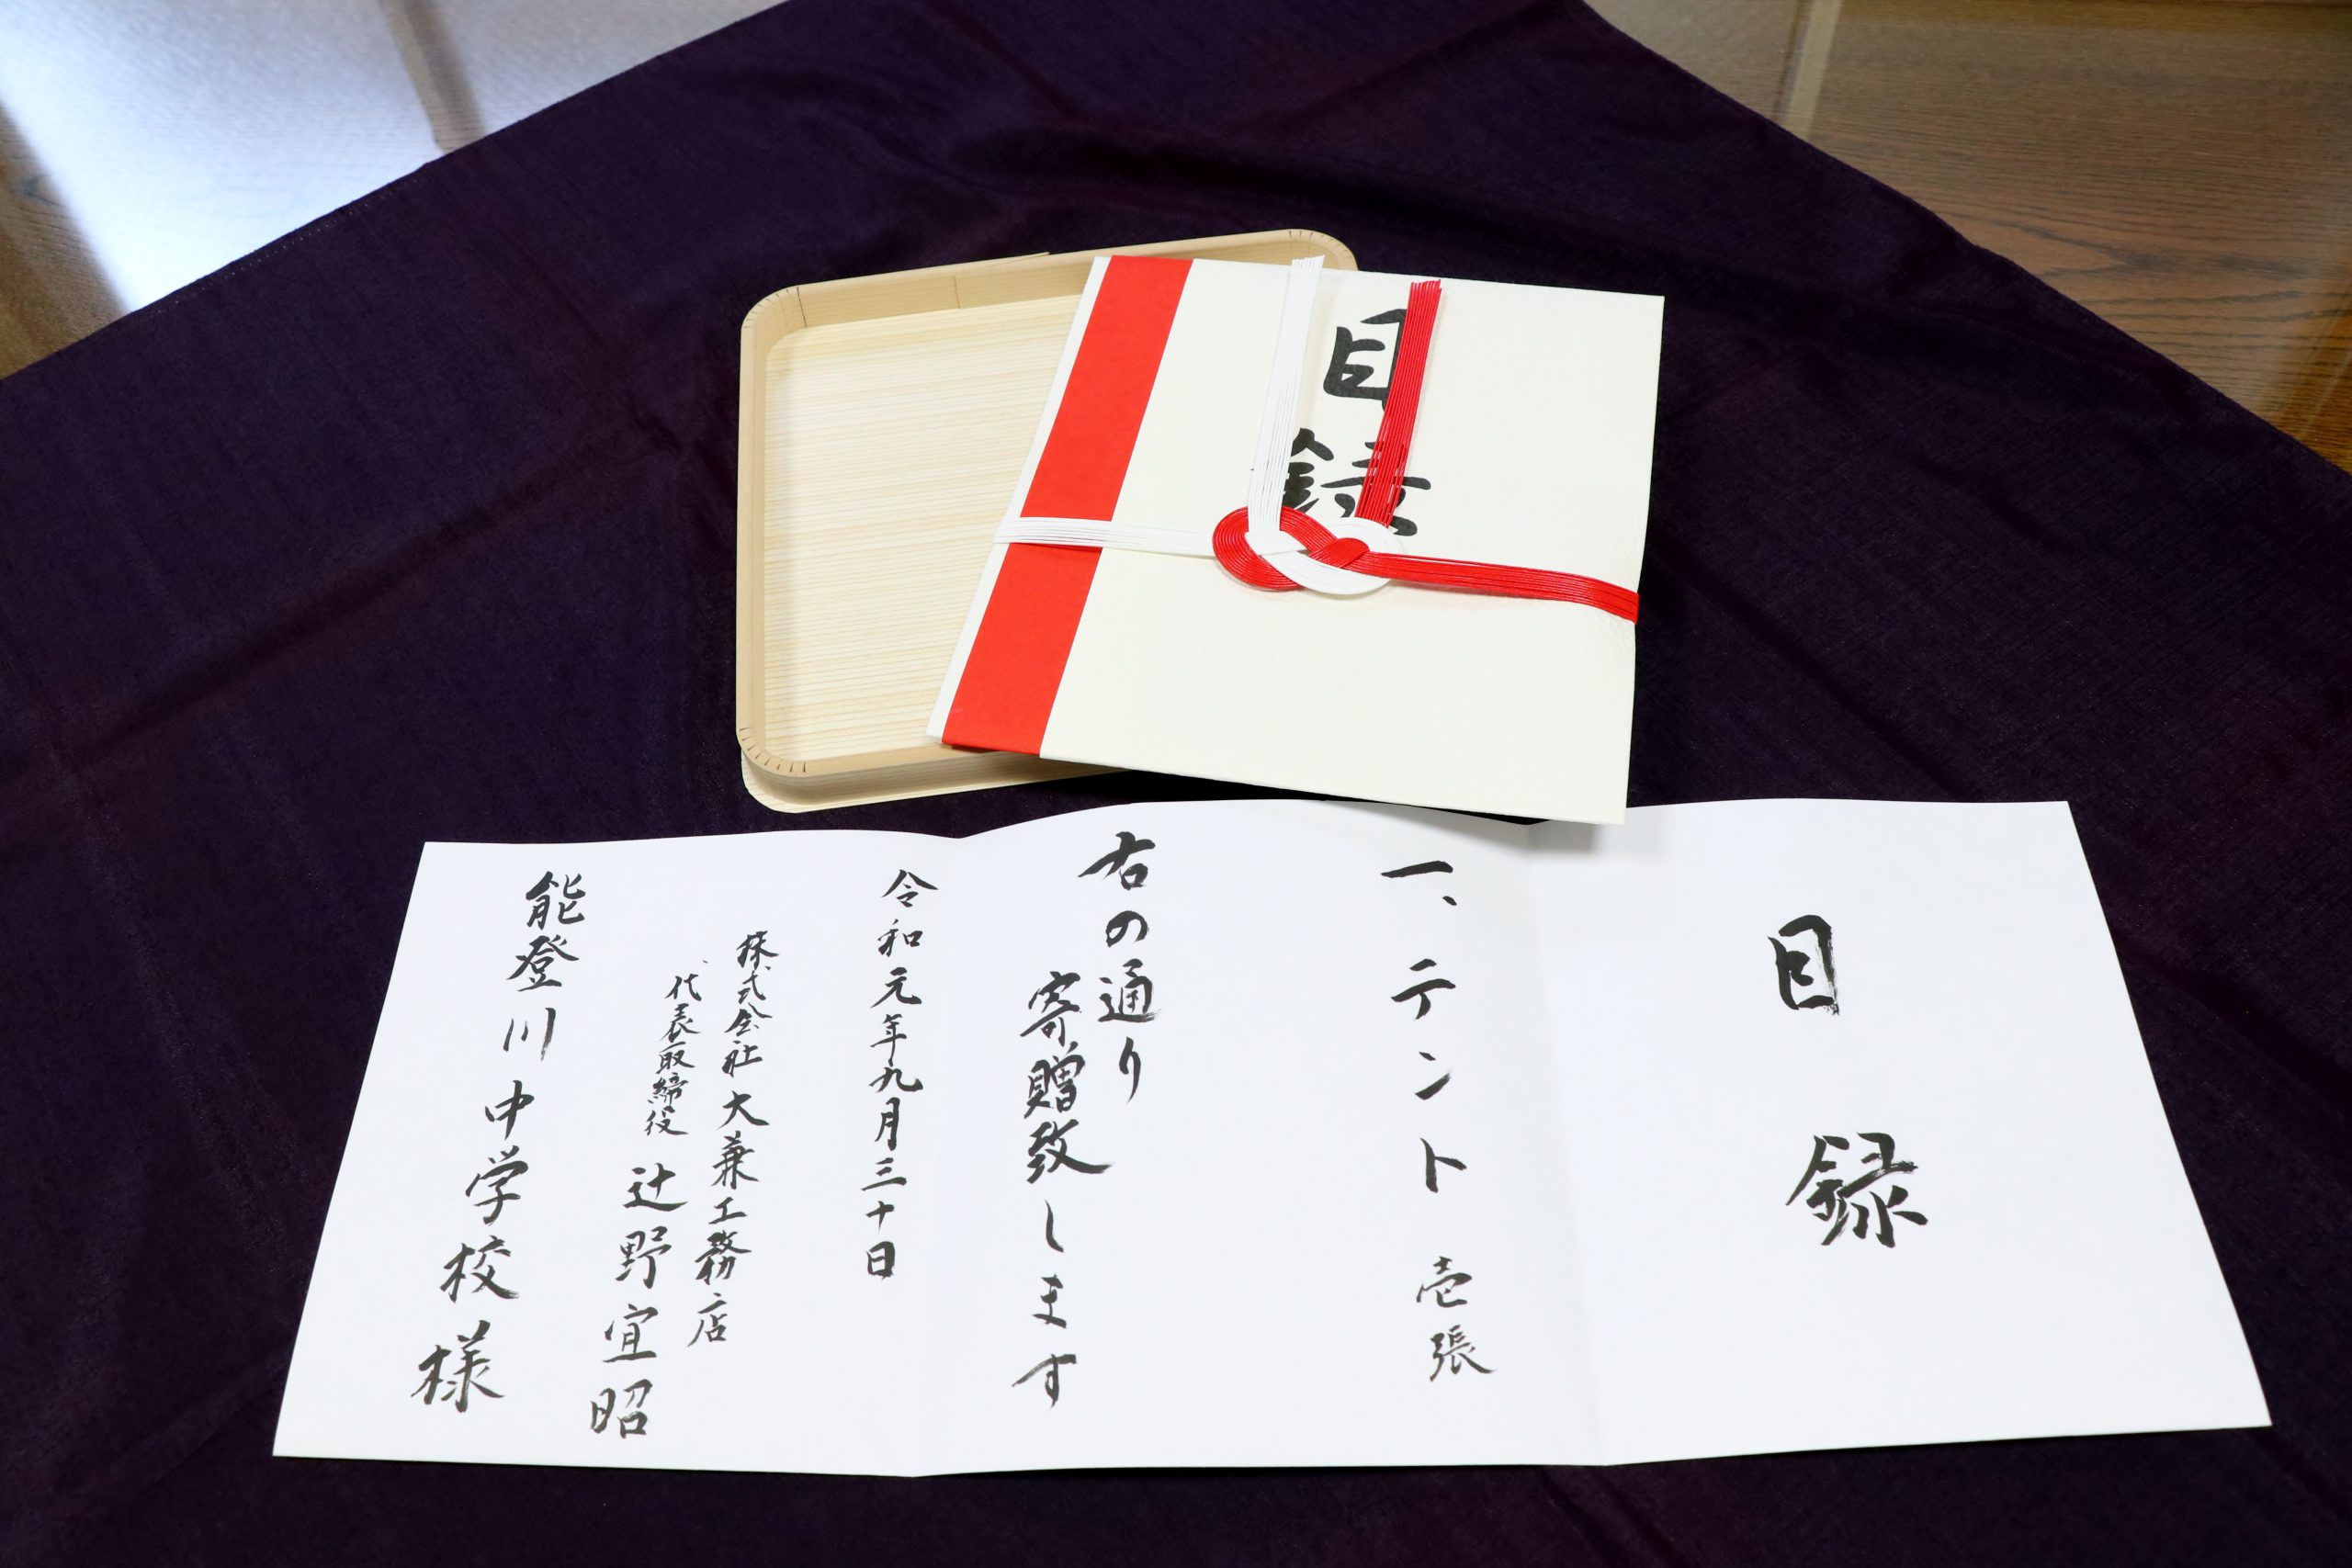 目録
目録
一、テント 壱張
右の通り
寄贈致します
令和元年九月三十日
株式会社大兼工務店
代表取締役 辻野宜昭
能登川中学校様